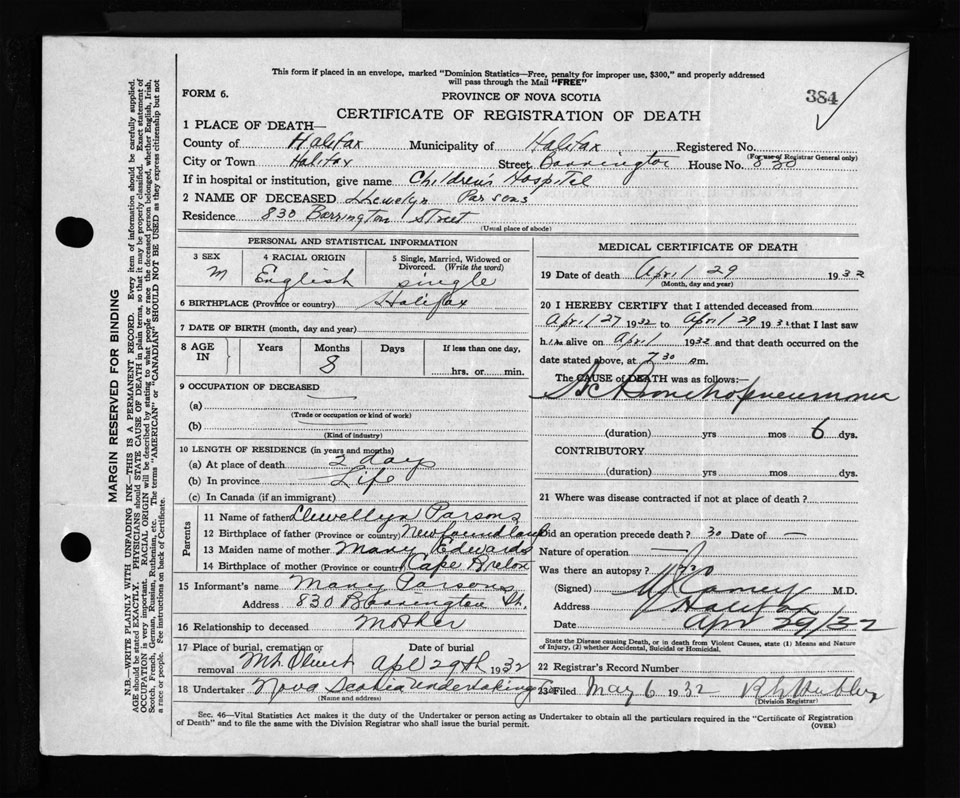 This form if placed in an envelope, marked "Dominion Statistics—Free, penalty for improper use, $300," and properly addressed
will pass through the Mail "FREE"
FORM 6.
PROVINCE OF NOVA SCOTIA
384
CERTIFICATE OF REGISTRATION OF DEATH
1 PLACE OF DEATH—
County of Halifax Municipality of Halifax Registered No.
(For use of Registrar General only)
City or Town Halifax Street Barrington House No. 830
If in hospital or institution, give name Children's Hospital
2 NAME OF DECEASED Llewelyn Parsons
Residence 830 Barrington Street
(Usual place of abode)
PERSONAL AND STATISTICAL INFORMATION
3 SEX 4 RACIAL ORIGIN 5 Single, Married, Widowed or
Divorced. (Write the word)
M English single
6 BIRTHPLACE (Province or country) Halifax
7 DATE OF BIRTH (month, day and year)
8 AGE IN Years Months Days If less than one day,
8 hrs. or min.
9 OCCUPATION OF DECEASED
(a)
(Trade or occupation or kind of work)
(b)
(Kind of industry)
10 LENGTH OF RESIDENCE (in years and months)
(a) At place of death 2 days
(b) In province Life
(c) In Canada (if an immigrant)
Parents
11 Name of father Llewellyn Parsons
12 Birthplace of father (Province or country) Newfoundland
13 Maiden name of mother Mary Edwards
14 Birthplace of mother (Province or country) Cape Breton
15 Informant's name Mary Parsons
Address 830 Barrington St.
16 Relationship to deceased Mother
17 Place of burial, cremation or Date of burial
removal Mt. Olivet Apl 29th 1932
18 Undertaker Nova Scotia Undertaking
(Name and address)
MEDICAL CERTIFICATE OF DEATH
19 Date of death April 29 1932
(Month, day and year)
20 I HEREBY CERTIFY that I attended deceased from
April 27 1932 to April 29 1932 that I last saw
him alive on April 1932 and that death occurred on the
date stated above, at 7 30 m.
The CAUSE OF DEATH was as follows:—
Ac Bronchopneumonia
(duration) yrs mos 6 dys.
CONTRIBUTORY
(duration) yrs mos dys.
21 Where was disease contracted if not at place of death?
Did an operation precede death? no Date of —
Nature of operation —
Was there an autopsy? no
(Signed) M.D.
Address Halifax
Date Apr 29/32
State the Disease causing Death, or in death from Violent Causes, state (1) Means and Nature
of Injury, (2) whether Accidental, Suicidal or Homicidal.
22 Registrar's Record Number
23 Filed May 6 1932
(Division Registrar)
Sec. 46—Vital Statistics Act makes it the duty of the Undertaker or person acting as Undertaker to obtain all the particulars required in the "Certificate of Registration
of Death" and to file the same with the Division Registrar who shall issue the burial permit.
(OVER)
MARGIN RESERVED FOR BINDING
N.B.—WRITE PLAINLY WITH UNFADING INK—THIS IS A PERMANENT RECORD. Every item of information should be carefully supplied.
AGE should be stated EXACTLY. PHYSICIANS should STATE CAUSE OF DEATH in plain terms, so that it may be properly classified. Exact statement of
OCCUPATION is very important. RACIAL ORIGIN will be described by stating to what people or race the deceased person belonged, whether English, Irish,
Scotch, French, German, Russian, Ruthenian, etc. The terms "AMERICAN" or "CANADIAN" SHOULD NOT BE USED as they express citizenship but not
a race or people. See instructions on back of Certificate.